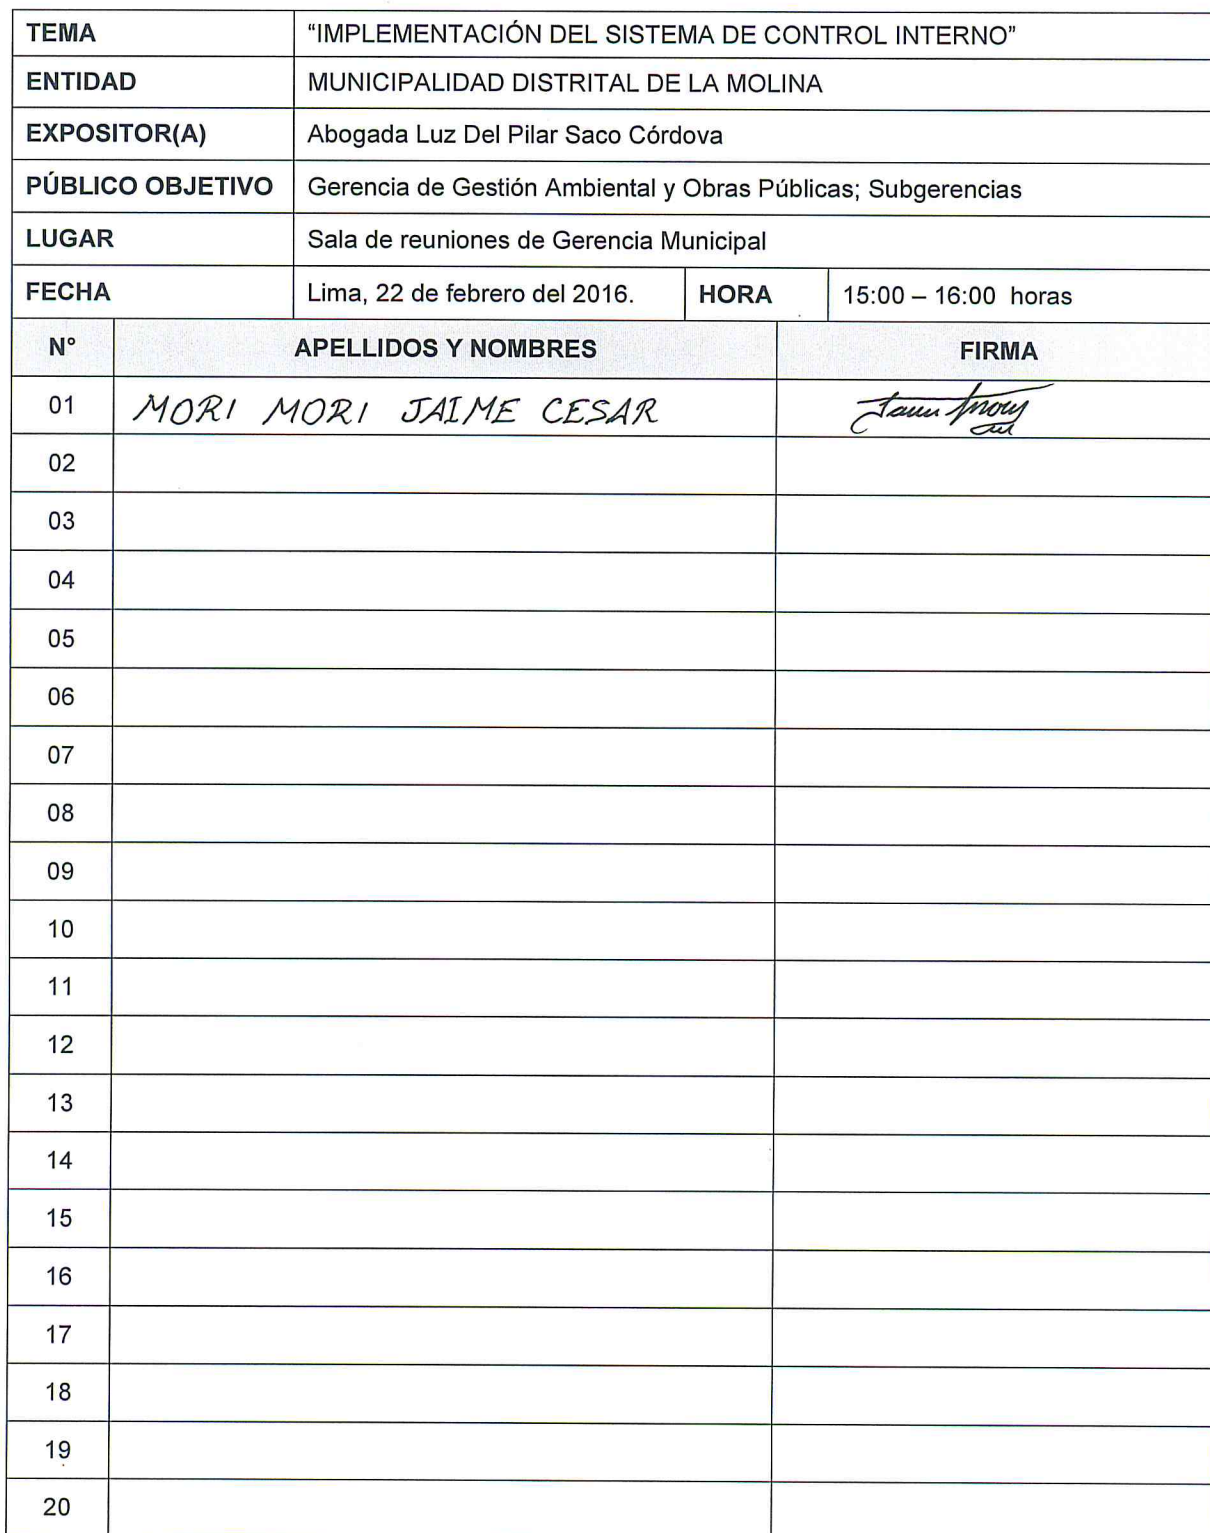 TEMA "IMPLEMENTACIÓN DEL SISTEMA DE CONTROL INTERNO"
ENTIDAD MUNICIPALIDAD DISTRITAL DE LA MOLINA
EXPOSITOR(A) Abogada Luz Del Pilar Saco Córdova
PÚBLICO OBJETIVO Gerencia de Gestión Ambiental y Obras Públicas; Subgerencias
LUGAR Sala de reuniones de Gerencia Municipal
FECHA Lima, 22 de febrero del 2016. HORA 15:00 – 16:00 horas
N° APELLIDOS Y NOMBRES FIRMA
01 MORI MORI JAIME CESAR
02
03
04
05
06
07
08
09
10
11
12
13
14
15
16
17
18
19
20